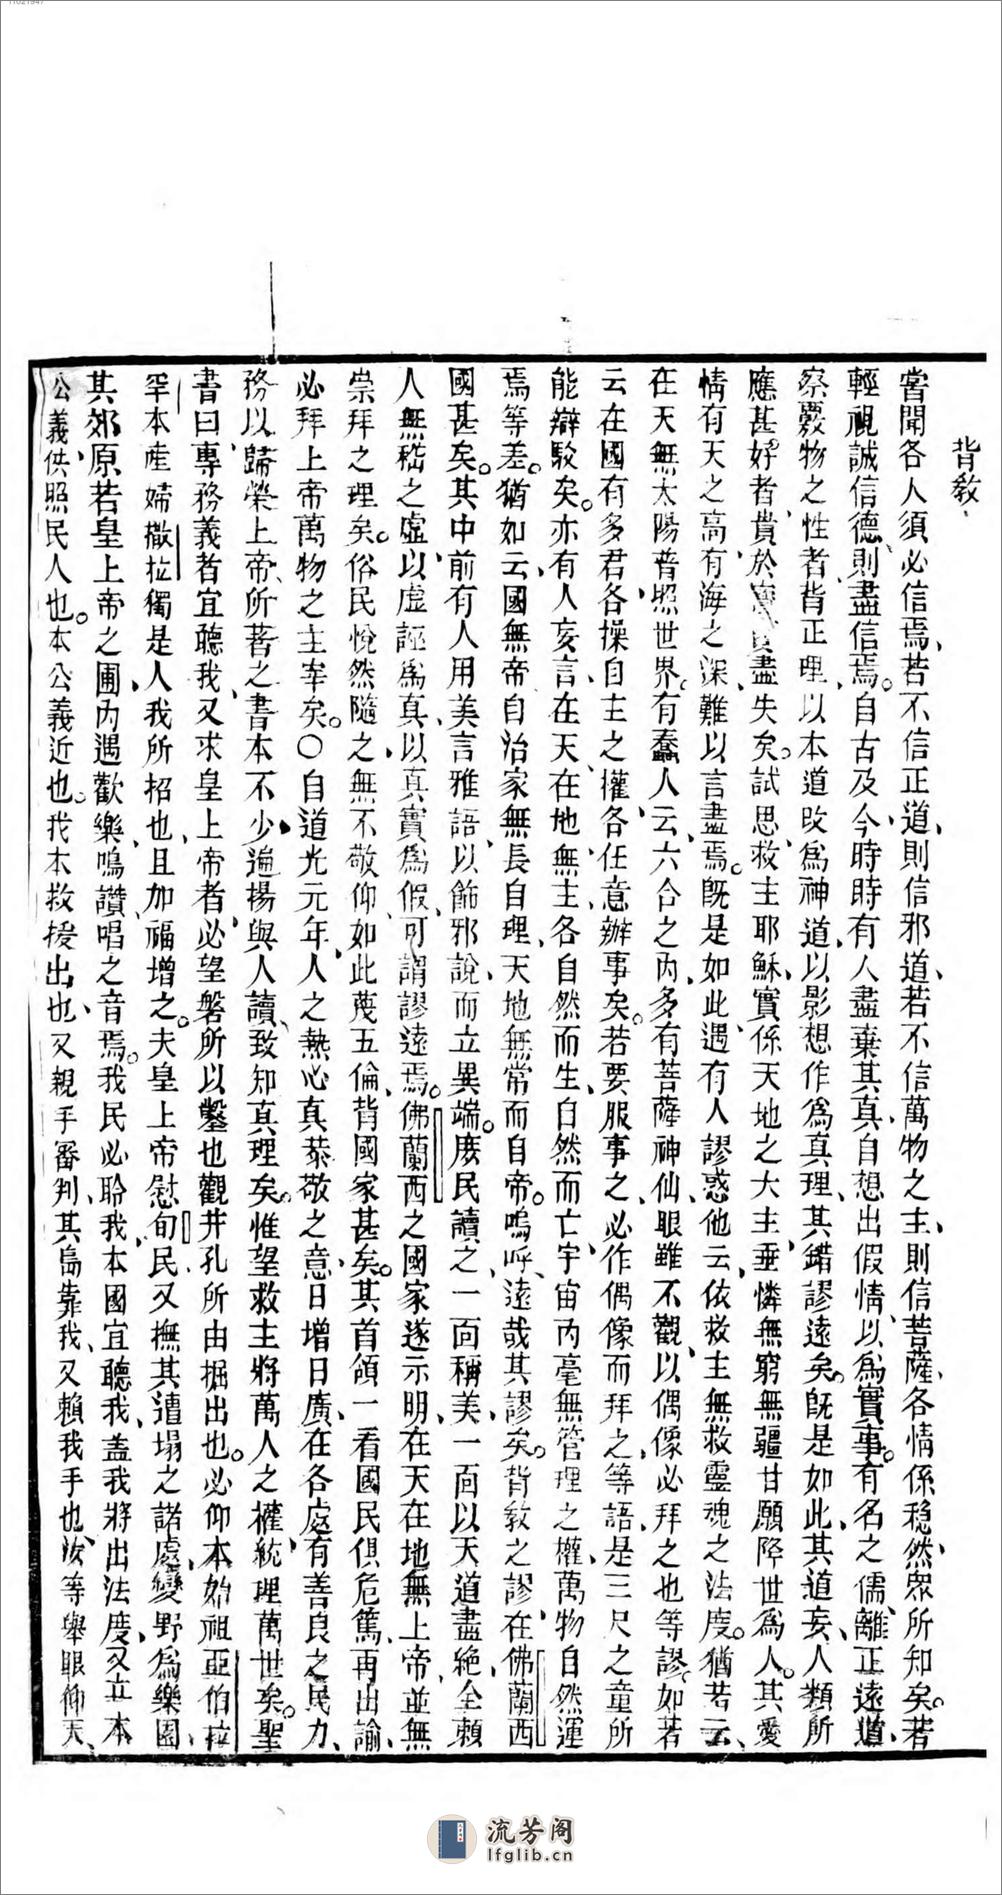 11021947
背敎、
嘗聞各人須必信焉、若不信正道、則信邪道、若不信萬物之主、則信菩薩、各情係穩然、衆所知矣。若
輕視誠信德、則盡信焉。自古及今、時時有人盡棄其眞、自想出假情、以爲實事。有名之儒、離正遠道、
察覈物之性者、背正理、以本道改爲神道、以影想作爲真理、其錯謬遠矣。旣是如此、其道妄、人類所
應甚好者、貴於寶貝、盡失矣。試思救主耶穌、實係天地之大主、垂憐無窮無疆、甘願降世爲人。其愛
情有天之高、有海之深、難以言盡焉。旣是如此、遇有人謬惑他云、依救主無救靈魂之法度。猶若云、
在天無太陽普照世界、有蠢人云、六合之內、多有菩薩神仙、眼雖不觀、以偶像必拜之也等謬、如若
云在國有多君、各操自主之權、各任意辦事矣。若要服事之、必作偶像而拜之、等語、是三尺之童所
能辯駁矣。亦有人妄言、在天在地無主、各自然而生、自然而亡、宇宙內毫無管理之權、萬物自然運
焉等差。猶如云、國無帝自治、家無長自理、天地無常而自帝。嗚呼、遠哉其謬矣。背敎之謬、在佛蘭西
國甚矣。其中前有人用美言雅語、以飾邪說、而立異端。庶民讀之、一面稱美、一面以天道盡絶、全賴
人無稽之虛、以虛誣爲真、以真實爲假、可謂謬遠焉。佛蘭西之國家遂示明、在天在地無上帝、並無
崇拜之理矣。俗民悅然隨之、無不敬仰、如此蔑五倫、背國家甚矣。其首領一看國民俱危篤、再出諭、
必拜上帝萬物之主宰矣。〇自道光元年、人之熱心眞恭敬之意、日增日廣、在各處有善良之民、力
務以歸榮上帝、所著之書本不少、遍揚與人讀、致知眞理矣。惟望救主將萬人之權、統理萬世矣。聖
書曰、專務義者宜聽我、又求皇上帝者、必望磐所以鑿也、觀井孔所由掘出也。必仰本始祖亞伯拉
罕、本產婦撒拉、獨是人我所招也、且加福增之。夫皇上帝慰旬民、又撫其遭塌之諸處、變野爲樂園、
其郊原若皇上帝之圃、內遇歡樂鳴讚唱之音焉。我民必聆我、本國宜聽我、蓋我將出法度、又立本
公義、供照民人也。本公義近也。我本救援出也、又親手審判、其島靠我、又賴我手也、汝等舉眼仰天、
流芳阁
lfglib.cn